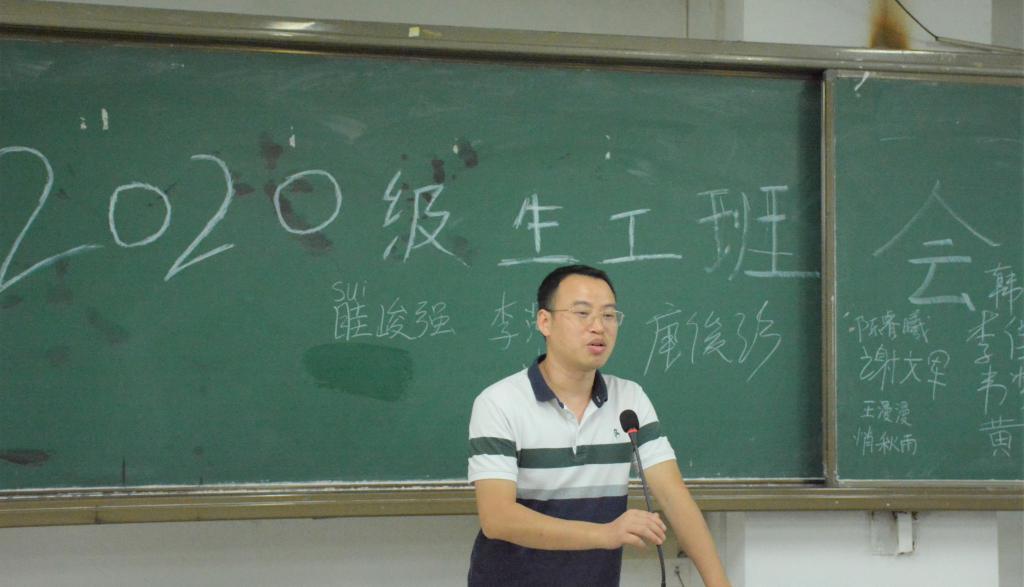 2020级生工班会
sui
眭峻强 李 唐俊珍
陈睿曦
谢文军
王漫漫
肖秋雨
韩
李佳
韦
黄